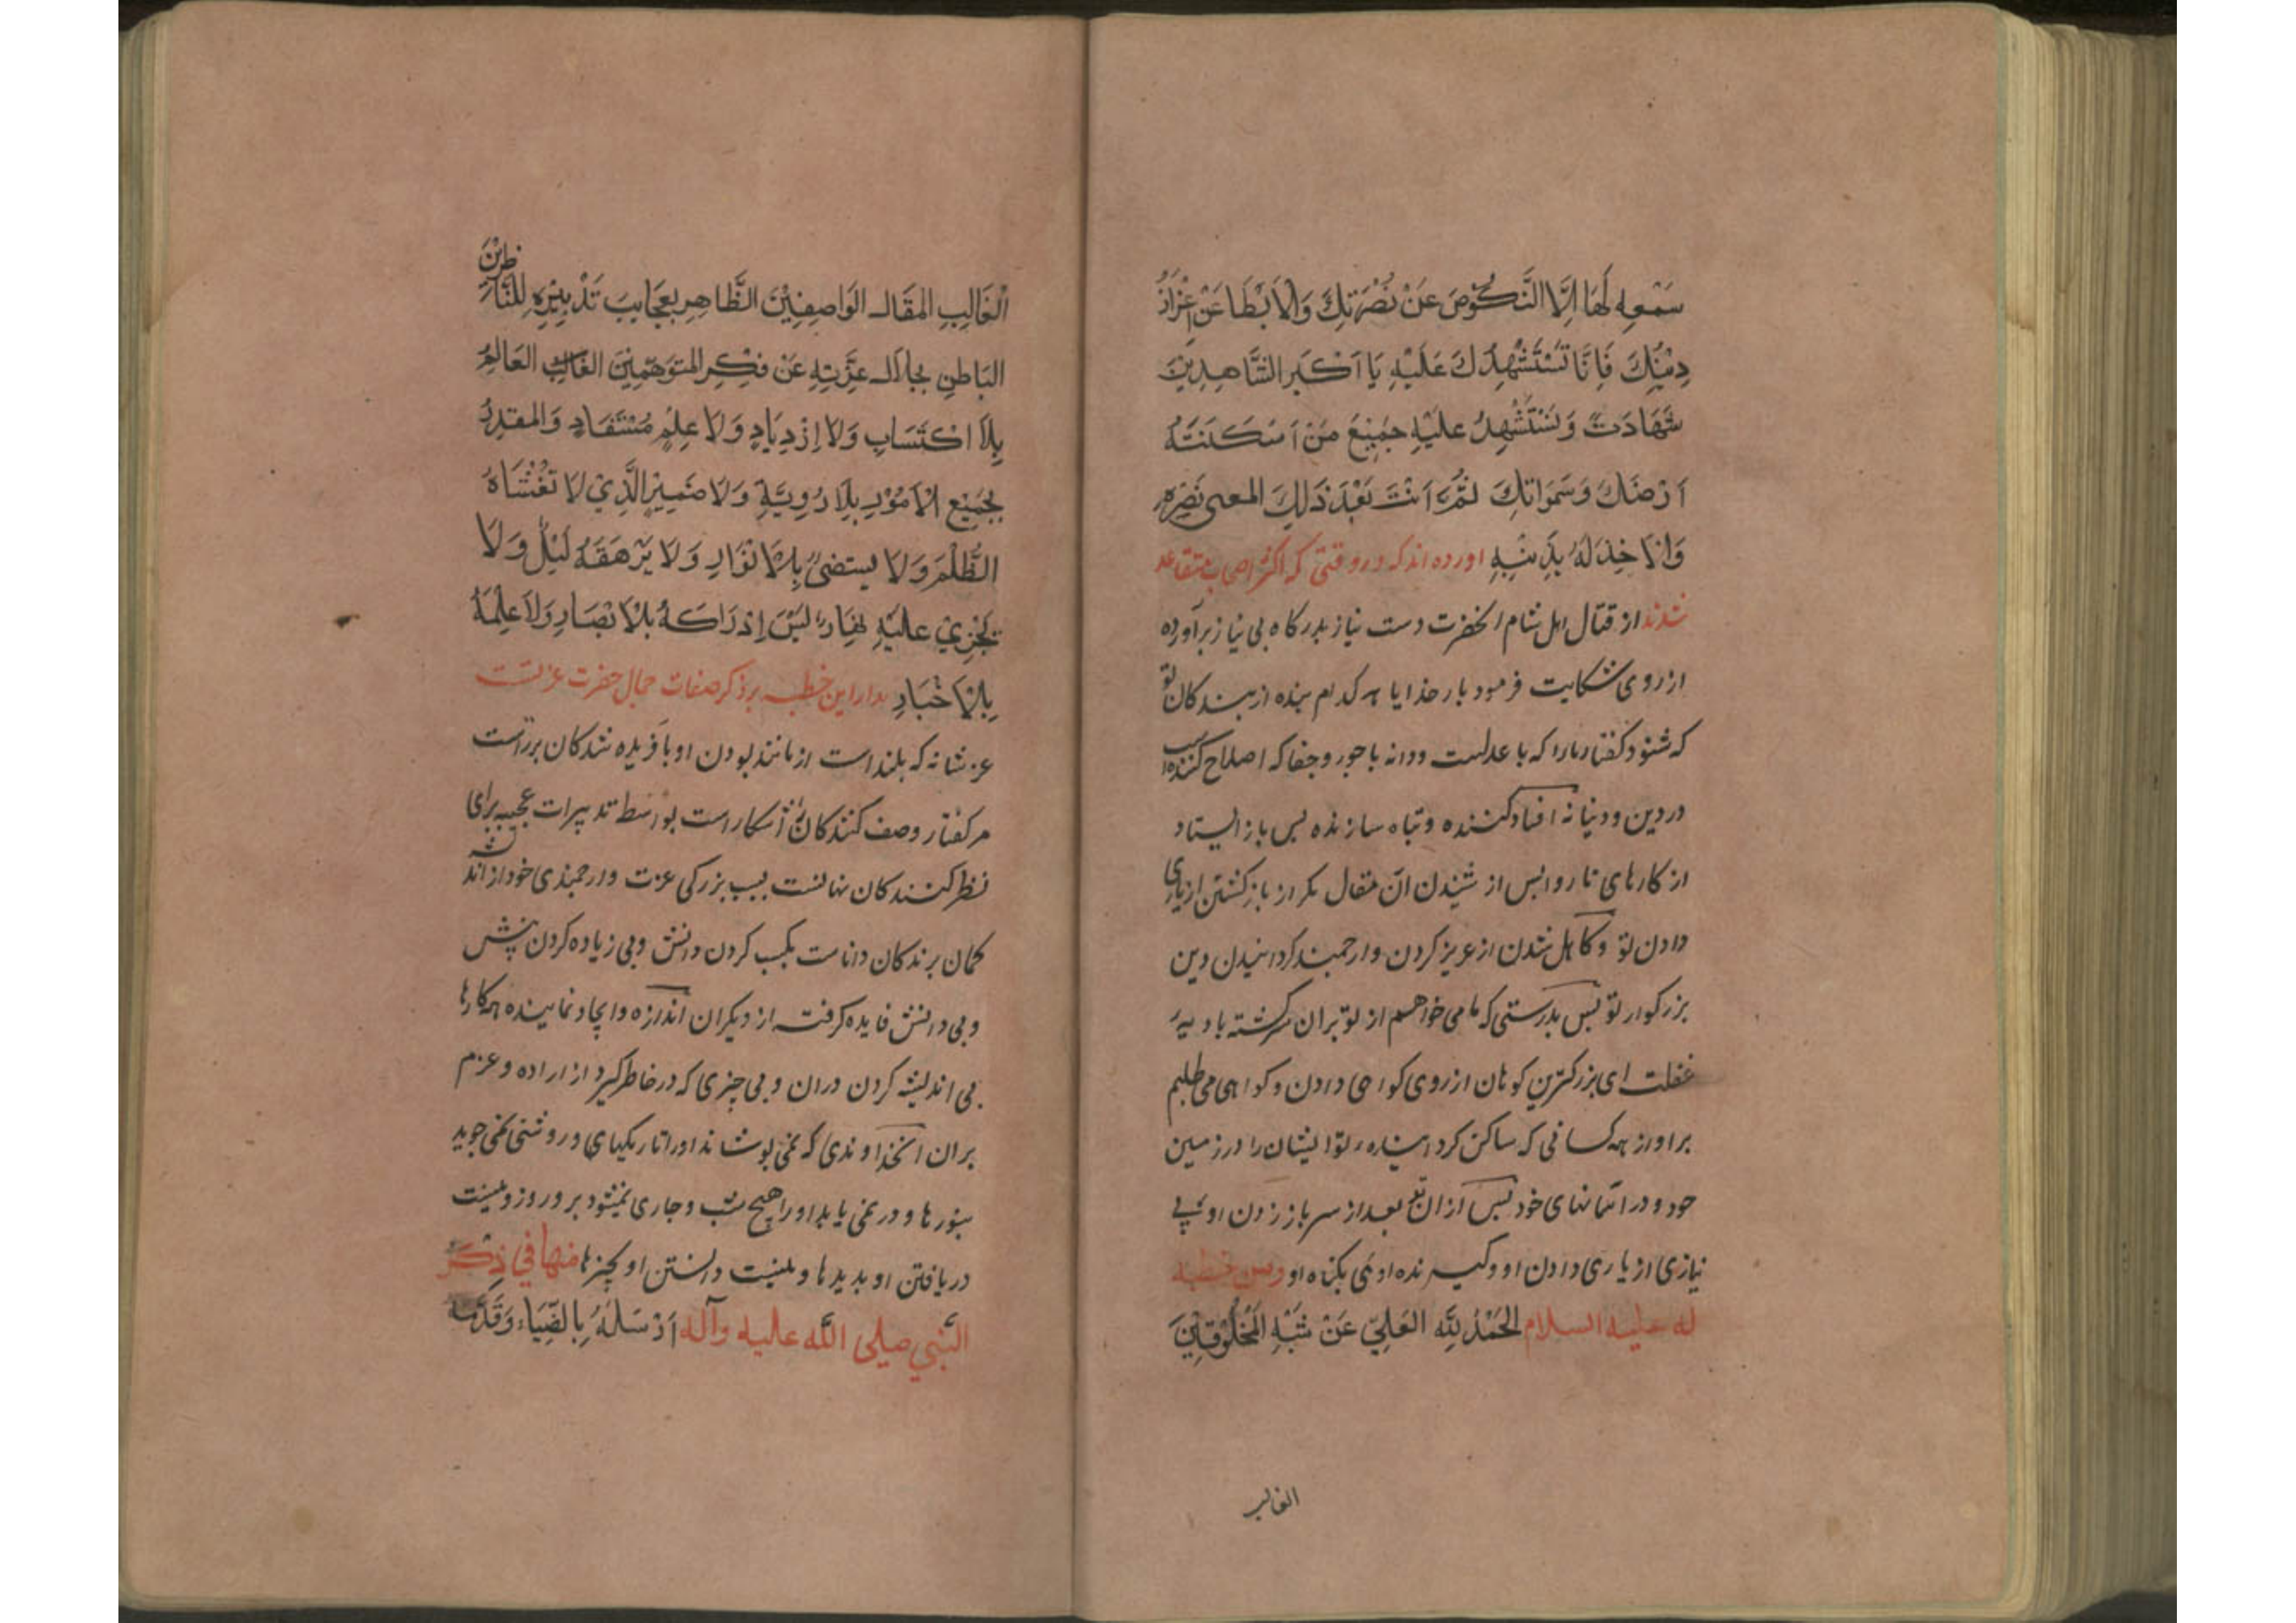 سَمْعِهِ لَهَا اِلَّا النُّكُوْصَ عَنْ نُصْرَتِكَ وَالْاَبْطَا عَنْ اِعْزَازِ
دِيْنِكَ فَاِنَّا نَسْتَشْهِدُكَ عَلَيْهِ يَا اَكْبَرَ الشَّاهِدِيْنَ
شَهَادَتً وَنَسْتَشْهِدُ عَلَيْهِ جَمِيْعَ مَنْ اَسْكَنْتَهُ
اَرْضَكَ وَسَمَوَاتِكَ ثُمَّ اَنْتَ بَعْدَ ذَلِكَ المغنى نَصْرِهِ
وَالْاخِذ لَهُ بِذَنْبِهِ اورده اند که در وقتی که اکثر اصحاب متقاعد
شدند از قتال اهل شام انحضرت دست نیاز بدرکاه بی نیاز برآورده
از روی شکایت فرمود بار خدایا هر کدام بنده از بندکان تو
که شنود کفتار ما را که با عدلست و دانه با جور و جفا که اصلاح کننده است
در دین و دنیا نه افساد کننده و تباه سازنده پس باز ایستاد
از کارهای ناروا پس از شنیدن آن مقال مکر از باز کشتن از یاری
دادن تو و کاهل شدن از عزیز کردن و ارجمند کردانیدن دین
بزرکوار تو پس بدرستی که ما می خواهیم از تو بران سرکشته بادیه
غفلت ای بزرکترین کوهان از روی کواهی دادن و کواهی می طلبم
بر او از همه کسانی که ساکن کردانیده تو ایشان را در زمین
خود و در آسمانهای خود پس از ان تو بعد از سر باز زدن او بی
نیازی از یاری دادن او و کیرنده اوئی بکناه او ومن خطبه
له علیه السلام الحَمْدُ لِلَّهِ العَلِيِّ عَنْ شَبَهِ الْمَخْلُوْقِيْنَ
الغالب
اَلْغَالِبِ المَقَالِ الوَاصِفِيْنَ الظَّاهِرِ بِعَجَايِبَ تَدْبِيْرِهِ لِلنَّاظِرِيْنَ
البَاطِنِ بِجَلَالِ عِزَّتِهِ عَنْ فِكْرِ المتوَهِّمِيْنَ العَالِمِ
بِلَا اكْتَسَابٍ وَلَا اِزْدِيَادٍ وَلَا عِلْمٍ مُسْتَفَادٍ وَالمقدِرُ
بِجَمِيْعِ الْاُمُوْرِ بِلَا رُوِيَّةٍ وَلَا ضَمِيْرٍ الَّذِيْ لَا تَغْشَاهُ
الظُّلَمُ وَلَا يستضىُ بِالْاَنْوَارِ وَلَا يَرْهَقُهُ لَيْلٌ وَلَا
يَجْرِيْ عَلَيْهِ نَهَارٌ لَيْسَ اِدْرَاكُهُ بِالْاَبْصَارِ وَلَا عِلْمُهُ
بِالْاَخْبَارِ مدار این خطبه بر ذکر صفات جمال حضرت عزتست
عز شانه که بلند است از مانند بودن او با فریده شدکان برتر است
مر کفتار وصف کنندکان را آشکار است بواسطه تدبیرات عجیبه برای
نظر کنندکان نهانست بسبب بزرکی عزت و ارجمندی خود از اندیشه
کمان برندکان دانا ست بکسب کردن دانش و بی زیاده کردن بینش
و بی دانش فایده کرفته از دیکران اندازه و ایجاد نماینده همه کارها
بی اندیشه کردن دران و بی چیزی که در خاطر کیرد از اراده و عزم
بران انخداوندی که نمی پوشاند او را تاریکیهای و روشنی نمی جوید
بنورها و در نمی یابد او را هیچ شب و جاری نمیشود بر و روز و نیست
دریافتن او بدیدها و نیست دانستن او بچیزها منها في ذِكْر
النَّبي صلى اللَّه عليه وآله اَرْسَلَهُ بِالضِّيَاءِ وَقَدَّمَهُ